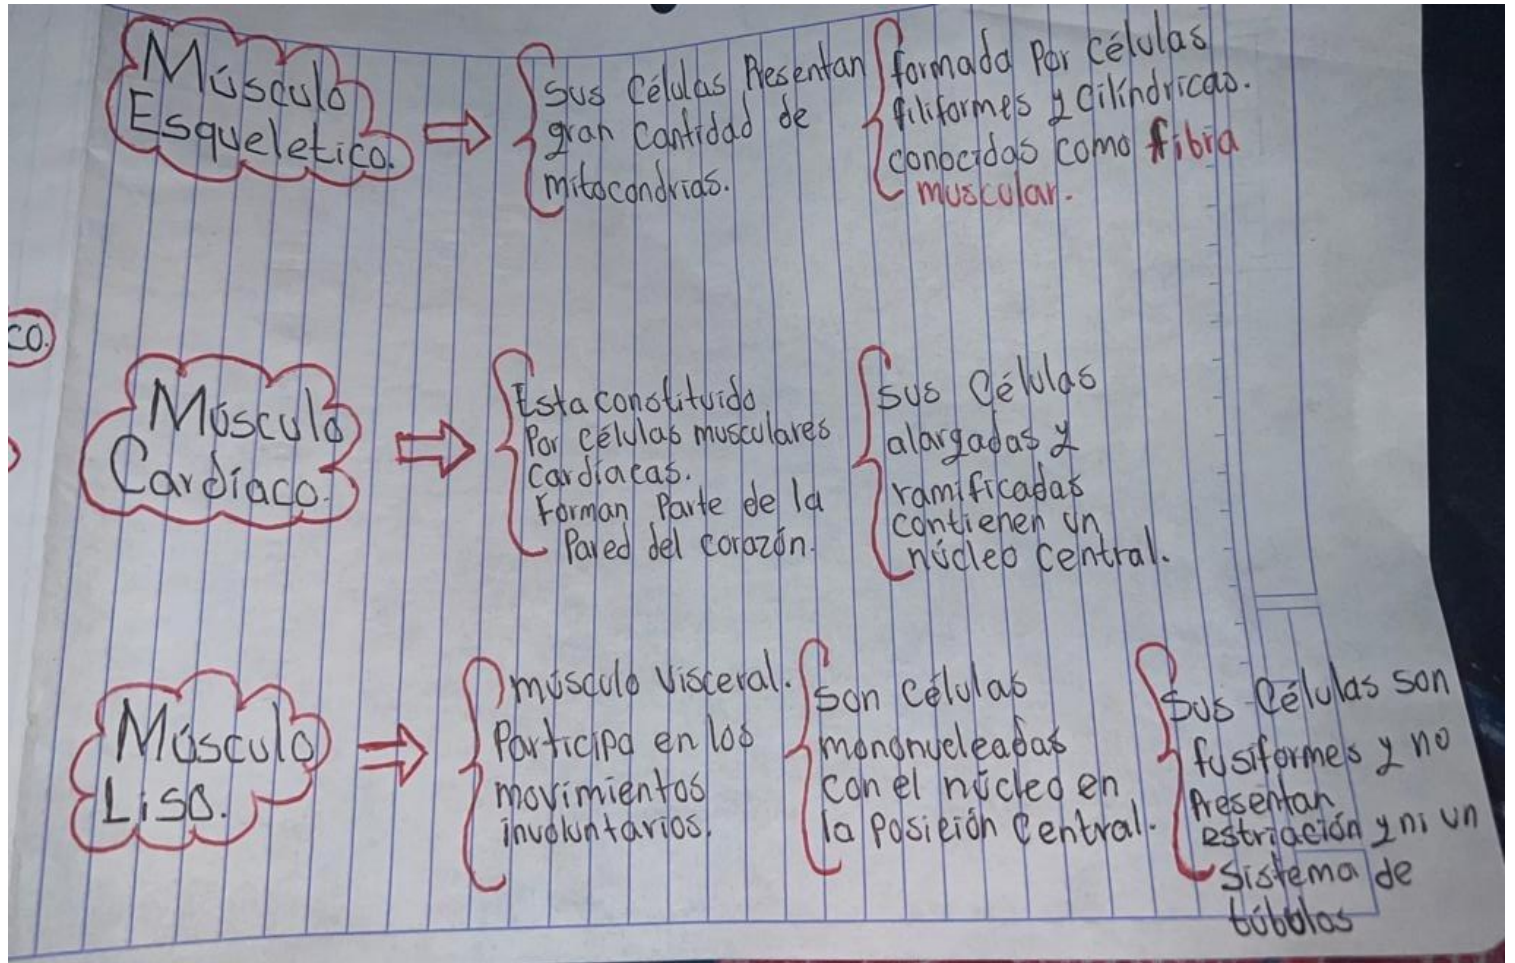 Músculo
Esqueletico.
Sus Células Presentan
gran Cantidad de
mitocondrias.
formada Por Células
filiformes y Cilíndricas.
conocidas como fibra
muscular.
co.
Músculo
Cardíaco.
Esta constituido
Por células musculares
cardíacas.
Forman Parte de la
Pared del corazón.
Sus Células
alargadas y
ramificadas
contienen un
núcleo Central.
Músculo
Liso.
músculo Visceral.
Participa en los
movimientos
involuntarios.
Son Células
mononucleadas
con el núcleo en
la Posición Central.
Sus Células son
fusiformes y no
Presentan
estriación y ni un
Sistema de
túbulos